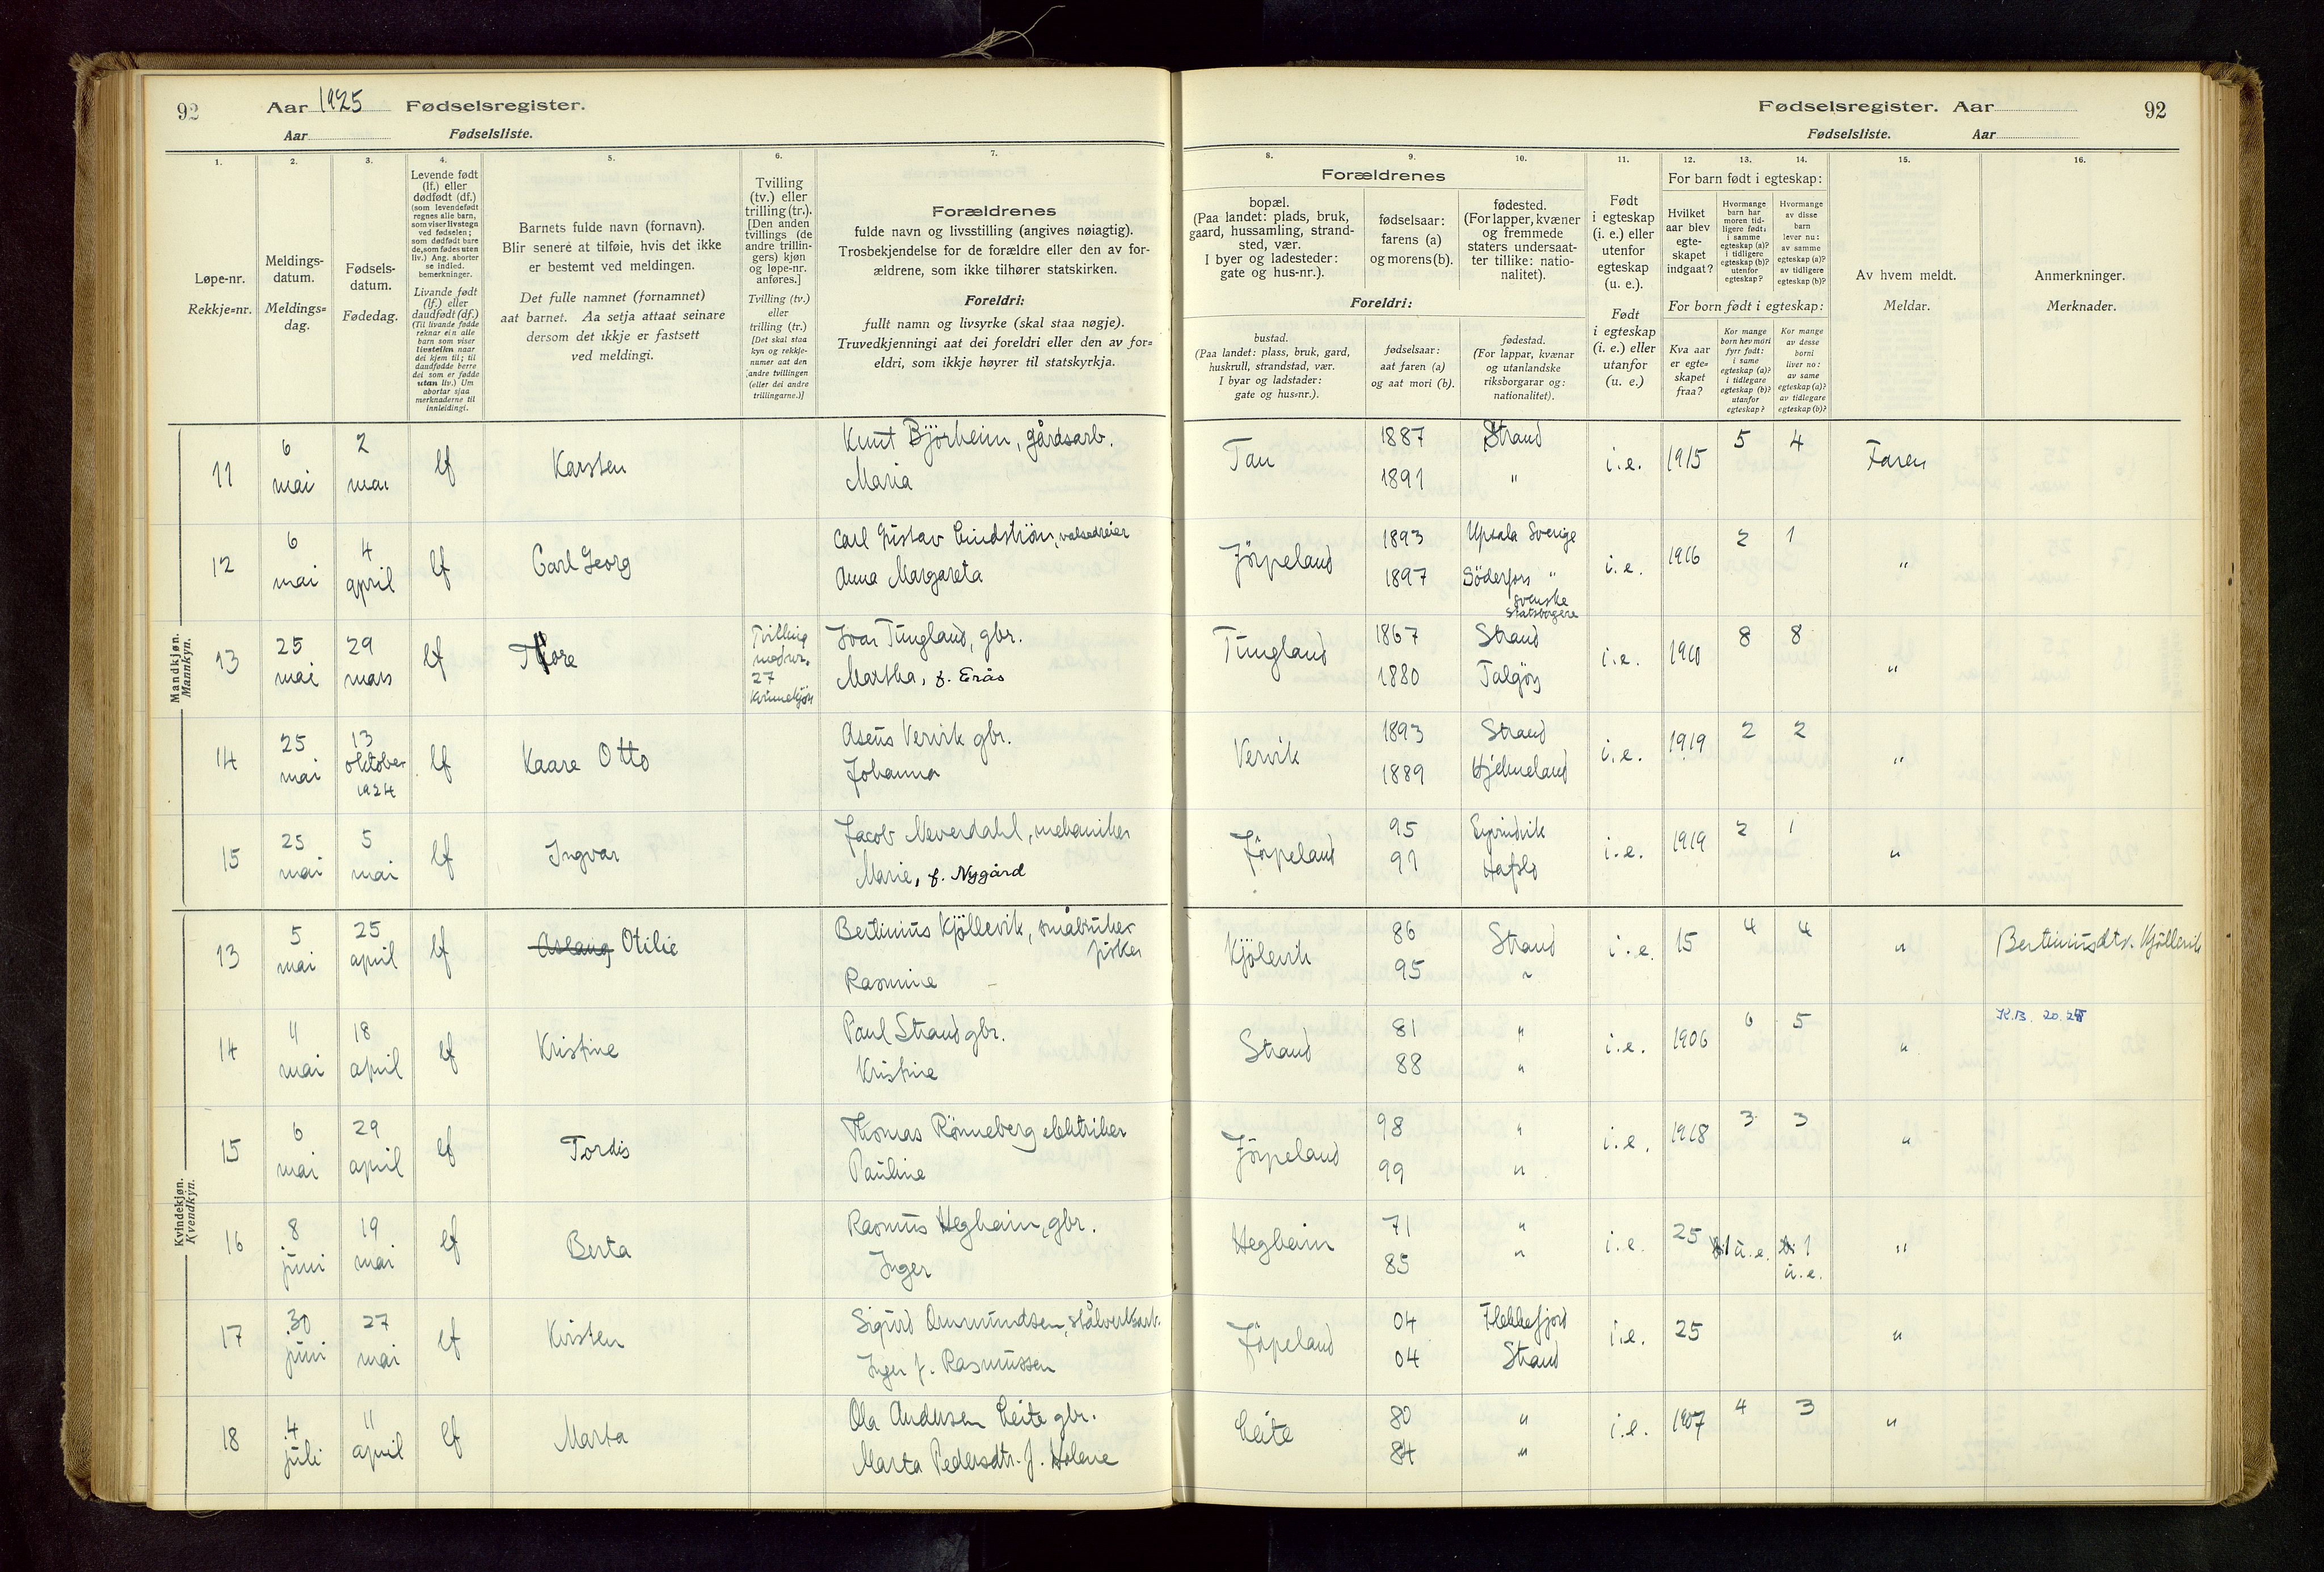 92
Aar 1925 Fødselsregister.
Aar Fødselsliste.
Fødselsregister. Aar
92
Fødselsliste. Aar
1.
2.
3.
4.
5.
6.
7.
8.
9.
10.
11.
12.
13.
14.
15.
16.
Løpe-nr.
Rekkje-nr.
Meldings-
datum.
Meldings-
dag.
Fødsels-
datum.
Fødedag.
Levende født
(lf.) eller
dødfødt (df.)
(som levendefødt
regnes alle barn,
som viser livstegn
ved fødselen;
som dødfødt bare
de, som fødes uten
liv.) Ang. aborter
se indled.
bemerkninger.
Livande født
(lf.) eller
daudfødt (df.)
(Til livande fødde
reknar ein alle
barn som viser
livsteikn naar
dei kjem til; til
daudfødde berre
dei som er fødde
utan liv.) Um
abortar sjaa
merknaderne til
innleidingi.
Barnets fulde navn (fornavn).
Blir senere at tilføie, hvis det ikke
er bestemt ved meldingen.
Det fulle namnet (fornamnet)
aat barnet. Aa setja attaat seinare
dersom det ikkje er fastsett
ved meldingi.
Tvilling
(tv.) eller
trilling (tr.).
[Den anden
tvillings (de
andre trillin-
gers) kjøn
og løpe-nr.
anføres.]
Tvilling (tv.)
eller
trilling (tr.)
[Det skal staa
kyn og rekkje-
numer aat den
andre tvillingen
(eller dei andre
trillingarne.)]
Forældrenes
fulde navn og livsstilling (angives nøiagtig).
Trosbekjendelse for de forældre eller den av for-
ældrene, som ikke tilhører statskirken.
Foreldri:
fullt namn og livsyrke (skal staa nøgje).
Truvedkjenningi aat dei foreldri eller den av for-
eldri, som ikkje høyrer til statskyrkja.
Forældrenes
bopæl.
(Paa landet: plads, bruk,
gaard, hussamling, strand-
sted, vær.
I byer og ladesteder:
gate og hus-nr.).
fødselsaar:
farens (a)
og morens (b).
fødested.
(For lapper, kvæner
og fremmede
staters undersaat-
ter tillike: natio-
nalitet).
Foreldri:
bustad.
(Paa landet: plass, bruk, gard,
huskrull, strandstad, vær.
I byar og ladstader:
gate og hus-nr.).
fødselsaar:
aat faren (a)
og aat mori (b).
fødestad.
(For lappar, kvænar
og utanlandske
riksborgarar og:
nationalitet).
Født
i egteskap
(i. e.) eller
utenfor
egteskap
(u. e.).
Født
i egteskap
(i. e.) eller
utanfor
(u. e.)
For barn født i egteskap:
Hvilket
aar blev
egte-
skapet
indgaat?
Hvormange
barn har
moren tid-
ligere født:
i samme
egteskap (a)?
i tidligere
egteskap (b)?
utenfor
egteskap?
Hvormange
av disse
barn
lever nu:
av samme
egteskap (a)?
av tidligere
egteskap (b)?
For born født i egteskap:
Kva aar
er egte-
skapet
fraa?
Kor mange
born hev mori
fyrr født:
i same
egteskap (a)?
i tidlegare
egteskap (b)?
utanfor
egteskap?
Kor mange
av desse
borni
liver no:
av same
egteskap (a)?
av tidlegare
egteskap (b)?
Av hvem meldt.
Meldar.
Anmerkninger.
Merknader.
Mandkjøn.
Mannkyn.
11 6 mai 2 mai lf Karsten Knut Bjørheim, gårdsarb. Tau 1887 Strand i.e. 1915 5 4 Faren
Maria 1891 "
12 6 mai 4 april lf Carl Georg Carl Gustav Lindström, valsedreier Jörpeland 1893 Upsala Sverige i.e. 1916 2 1 "
Anna Margareta 1897 Söderfors "
svenske
statsborgere
13 25 mai 29 mars lf Tore Tvilling Ivar Tungland, gbr. Tungland 1867 Strand i.e. 1910 8 8 "
med nr.
27
Kvinnekjøn
Martha, f. Erås 1880 Talgöy
14 25 mai 13 oktober 1924 lf Kaare Otto Asens Vervik gbr. Vervik 1893 Strand i.e. 1919 2 2 "
Johanna 1889 Hjelmeland
15 25 mai 5 mai lf Ingvar Jacob Neverdahl, mekaniker Jörpeland 95 Eyvindvik i.e. 1919 2 1 "
Marie, f. Nygård 91 Hafslo
Kvindekjøn.
Kvendkyn.
13 5 mai 25 april lf Aslaug Otilie Bertinius Kjöllevik, småbruker Kjölevik 86 Strand i.e. 15 4 4 " Bertiniusdtr. Kjöllevik
fisker
Rasmine 95 "
14 11 mai 18 april lf Kristine Paul Strand gbr. Strand 81 " i.e. 1906 6 5 " K.B. 20.
Kristine 88 "
15 6 mai 29 april lf Tordis Thomas Rönneberg elektriker Jörpeland 98 " i.e. 1918 3 3 "
Pauline 99 "
16 8 juni 19 mai lf Berta Rasmus Hegheim, gbr. Hegheim 71 " i.e. 25 1 u.e. 1 u.e. "
Inger 85 "
17 30 juni 27 mai lf Kirsten Sigurd Ommundsen, stålverksarb. Jörpeland 04 Flekkefjord i.e. 25 "
Inger f. Rasmussen 04 Strand
18 4 juli 11 april lf Marta Ola Andersen Leite gbr. Leite 80 " i.e. 1907 4 3 "
Marta Pedersdtr. f. Holene 84 "